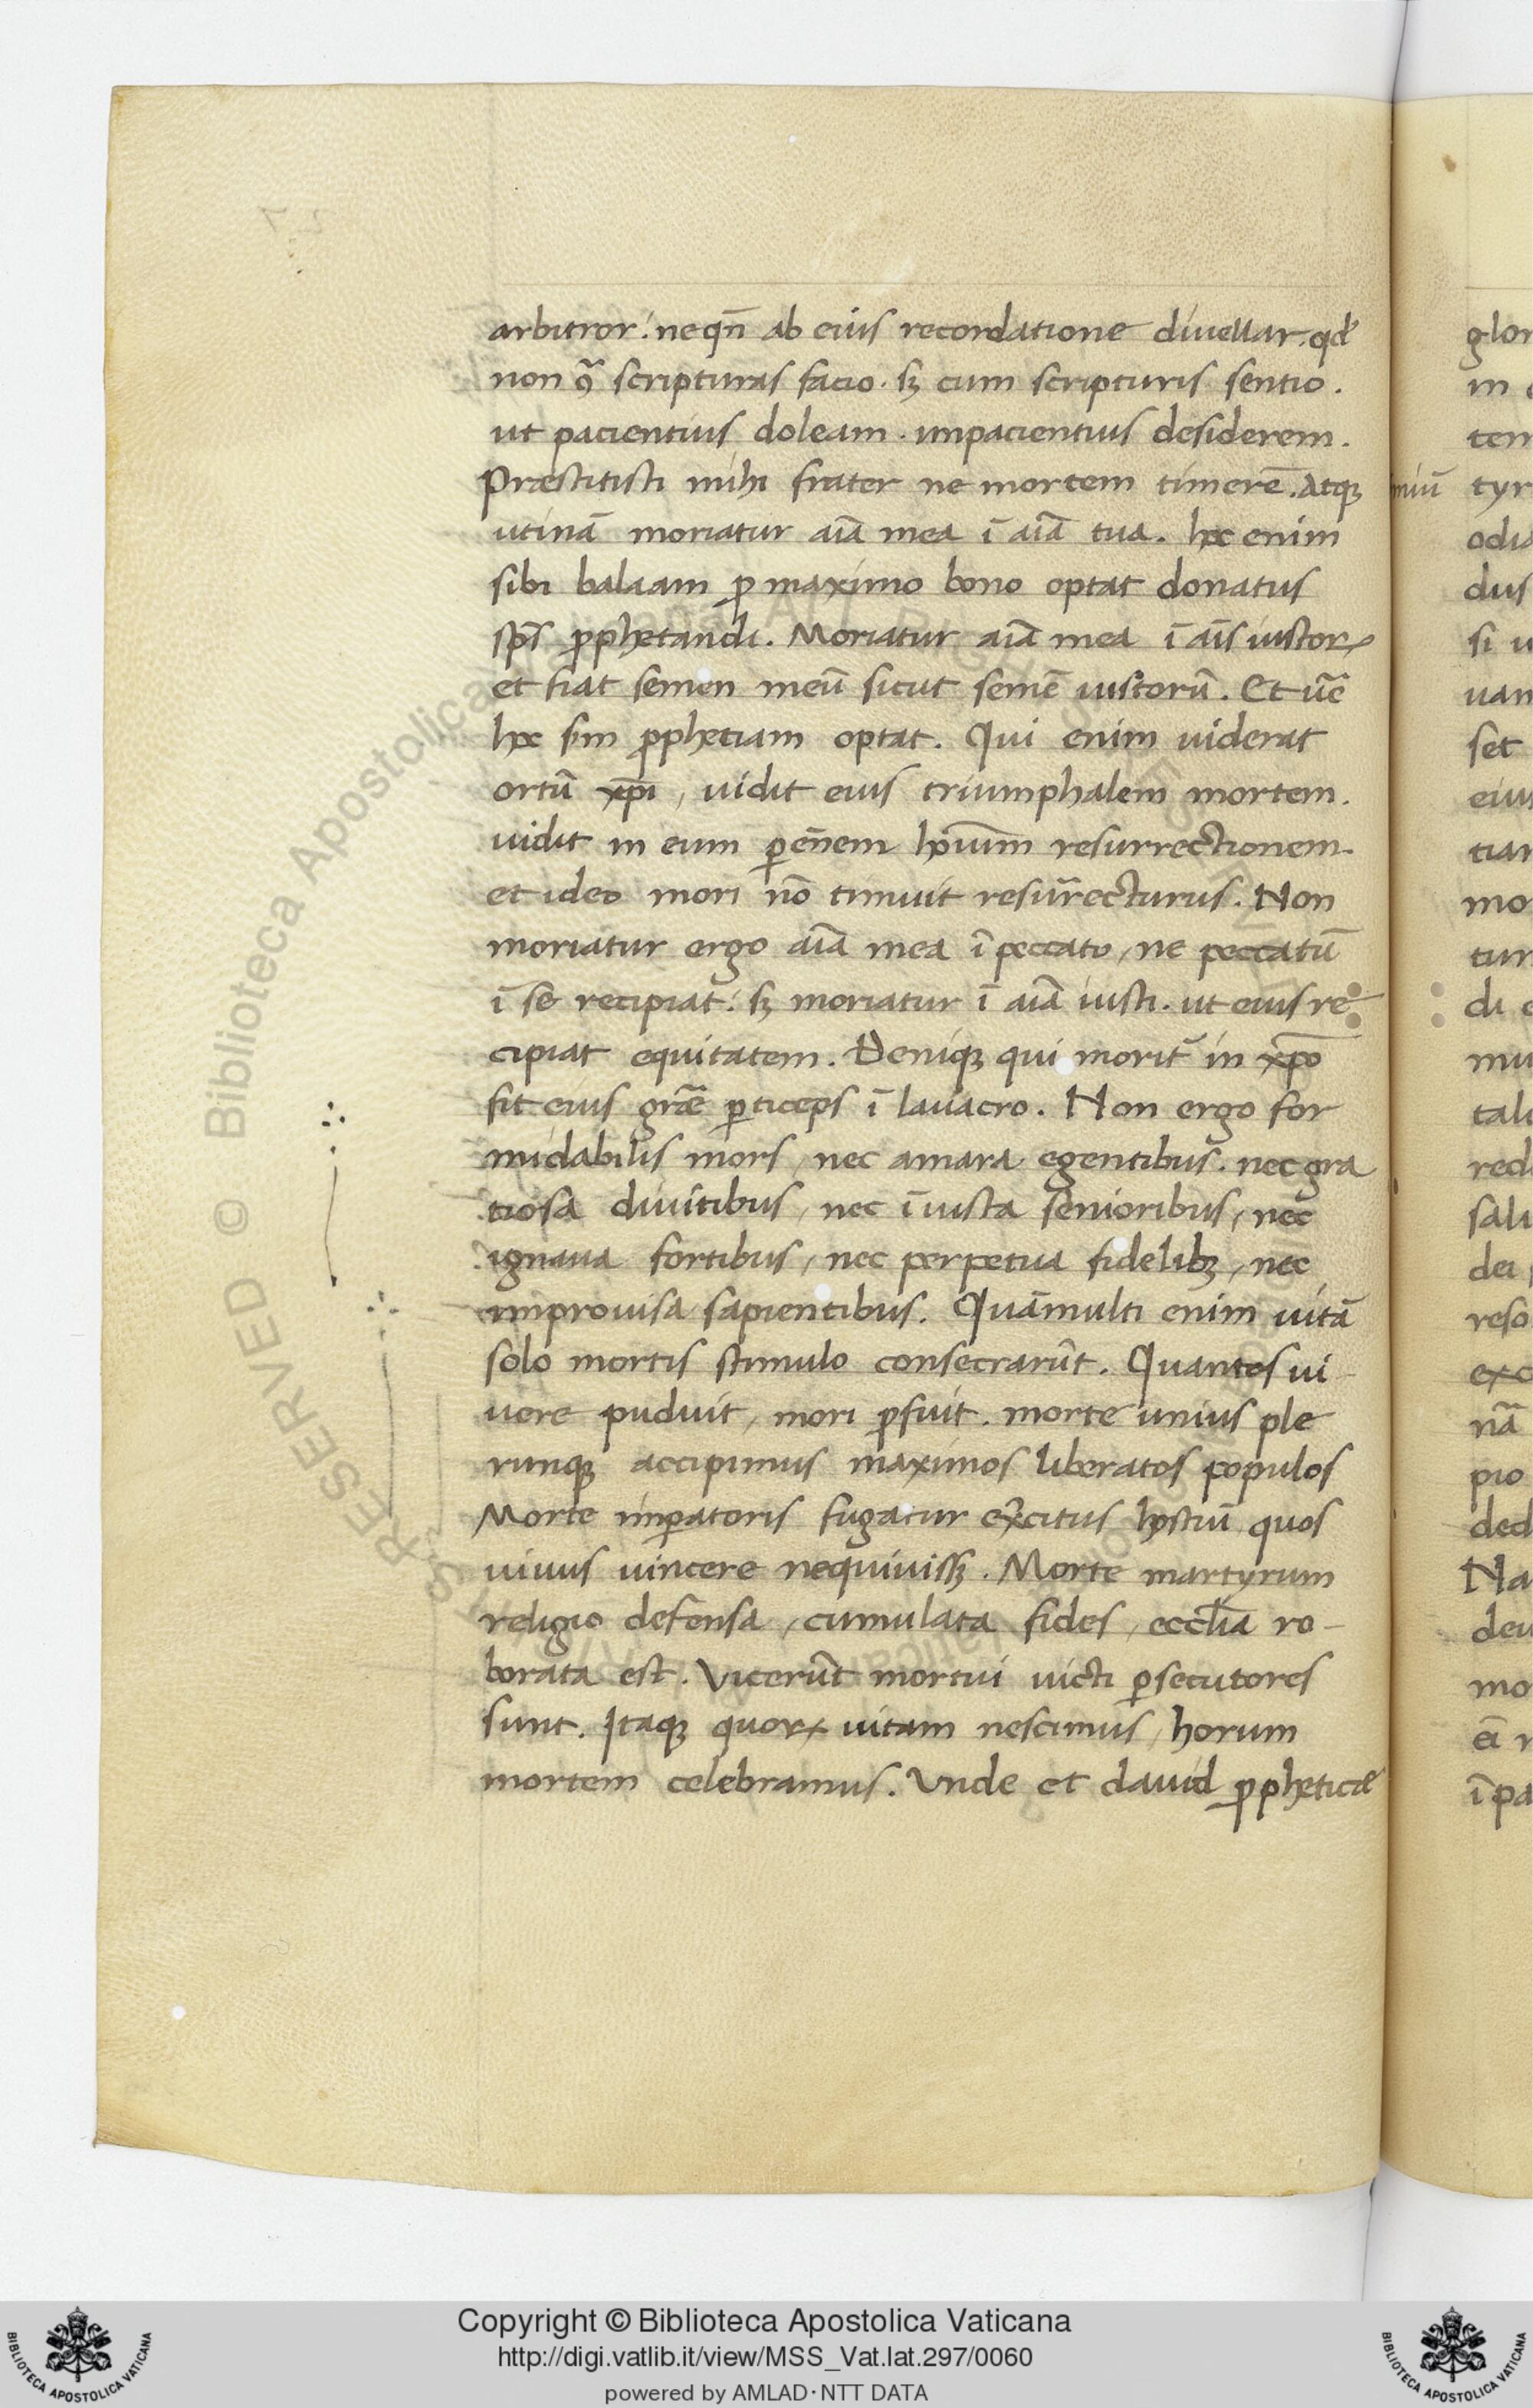 arbitror: ne qn̄ ab eius recordatione diuellar. qđ
non ꝯ̃ scripturas facio. sꝫ cum scripturis sentio.
ut pacientius doleam. impacientius desiderem.
Præstitisti mihi frater ne mortem timerē. Atqꝫ
utinā moriatur aiā mea ī aiā tua. hoc enim
sibi balaam ꝓ maximo bono optat donatus
sp̄s ꝓphetandi. Moriatur aiā mea ī aīs iustoꝝ
et fiat semen meū sicut semē iustorū. Et uē
hoc sm̄ ꝓphetiam optat. Qui enim uiderat
ortū xp̄i, uidit eius triumphalem mortem.
uidit in eum ꝑen̄em hoiūm resurrectionem.
et ideo mori nō timuit resur̄recturus. Non
moriatur ergo aiā mea ī peccato, ne peccatū
ī se recipiat: sꝫ moriatur ī aiā iusti. ut eius re
cipiat equitatem. Deniqꝫ qui morit̄ in xp̄o
fit eius grǣ ꝑticeps ī lauacro. Non ergo for
midabilis mors, nec amara egentibus. nec gra
tiosa diuitibus, nec īiusta senioribus, nec
ignaua fortibus, nec perpetua fidelibꝫ, nec
improuisa sapientibus. Quāmulti enim uitā
solo mortis stimulo consecrarūt. Quantos ui
uere puduit, mori ꝓfuit. morte unius ple
runqꝫ accipimus maximos liberatos populos
Morte imꝑatoris fugatur ex̄citus hostiū quos
uiuus uincere nequiuissꝫ. Morte martyrum
religio defensa, cumulata fides, eccl̄ia ro-
borata est. Vicerūt mortui uicti ꝑsecutores
sunt. Itaqꝫ quoꝝ uitam nescimus, horum
mortem celebramus. Vnde et dauid ꝓpheticæ
glor
in
ten
miū tyr
odia
dus
si u
uan
set
eius
tian
mo
tur
di c
mu
tali
redi
salu
dei
reso
exc
nā
pio
ded
Na
deu
mo
eī
īpa
© Biblioteca Apostolica
RESERVED
Copyright © Biblioteca Apostolica Vaticana
http://digi.vatlib.it/view/MSS_Vat.lat.297/0060
powered by AMLAD·NTT DATA
BIBLIOTECA APOSTOLICA VATICANA
BIBLIOTECA APOSTOLICA VATICANA